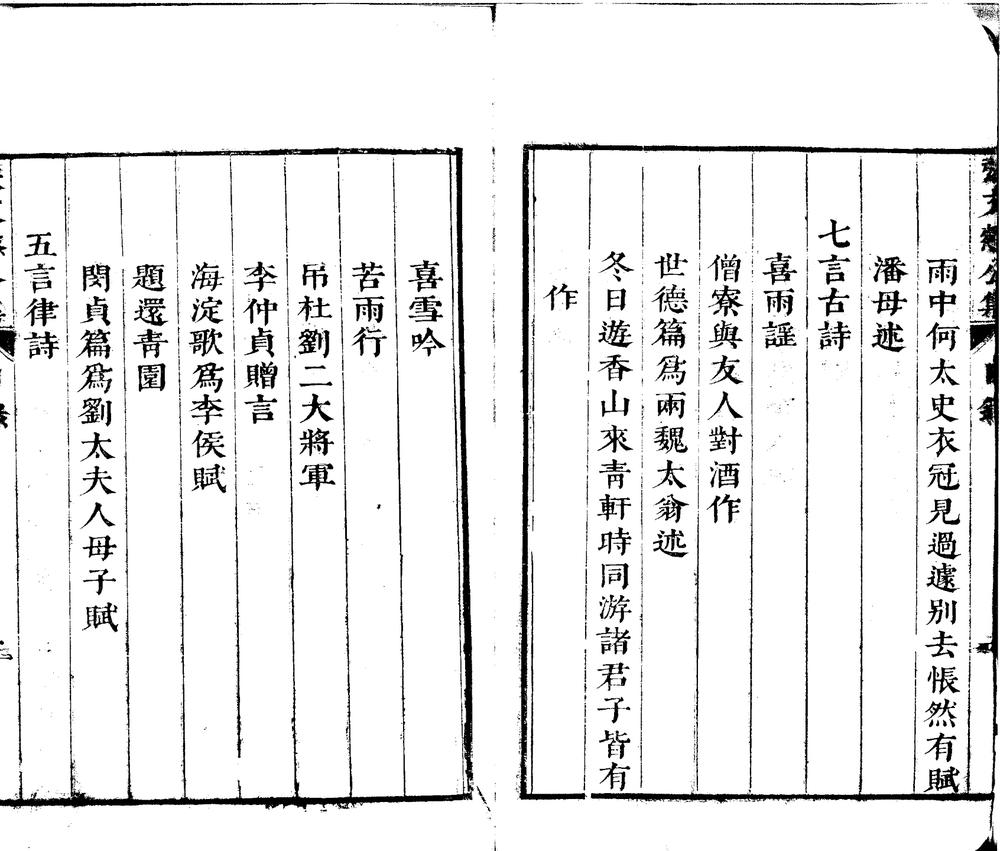 雨中何太史衣冠見過遽別去悵然有賦
潘母述
七言古詩
喜雨謡
僧寮與友人對酒作
世德篇爲兩魏太翁述
冬日遊香山來靑軒時同游諸君子皆有
作
喜雪吟
苦雨行
吊杜劉二大將軍
李仲貞贈言
海淀歌爲李侯賦
題還靑園
閔貞篇爲劉太夫人母子賦
五言律詩